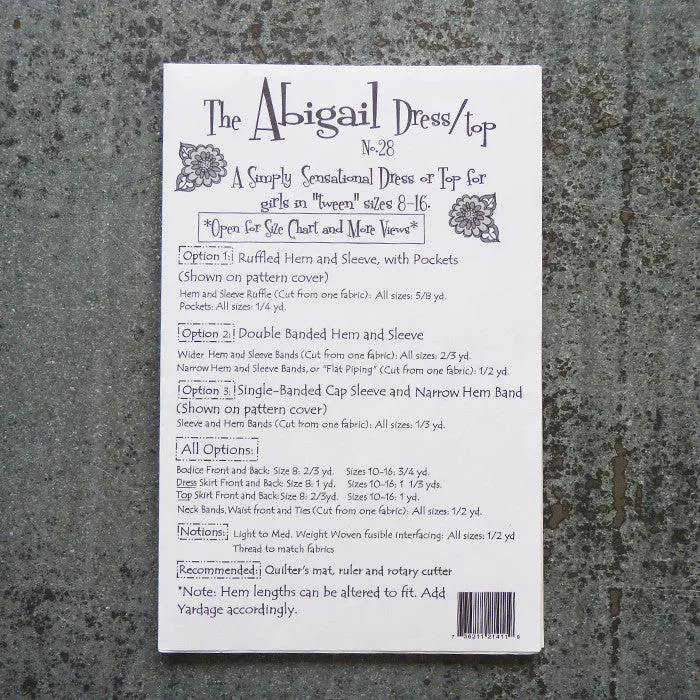 The Abigail Dress/top
No.28
A Simply Sensational Dress or Top for
girls in "tween" sizes 8-16.
*Open for Size Chart and More Views*
Option 1: Ruffled Hem and Sleeve, with Pockets
(Shown on pattern cover)
Hem and Sleeve Ruffle (Cut from one fabric): All sizes: 5/8 yd.
Pockets: All sizes: 1/4 yd.
Option 2: Double Banded Hem and Sleeve
Wider Hem and Sleeve Bands (Cut from one fabric): All sizes: 2/3 yd.
Narrow Hem and Sleeve Bands, or "Flat Piping" (Cut from one fabric): 1/2 yd.
Option 3: Single-Banded Cap Sleeve and Narrow Hem Band
(Shown on pattern cover)
Sleeve and Hem Bands (Cut from one fabric): All sizes: 1/3 yd.
All Options:
Bodice Front and Back: Size 8: 2/3 yd. Sizes 10-16: 3/4 yd.
Dress Skirt Front and Back: Size 8: 1 yd. Sizes 10-16; 1 1/3 yds.
Top Skirt Front and Back: Size 8: 2/3yd. Sizes 10-16: 1 yd.
Neck Bands, Waist front and Ties (Cut from one fabric): All sizes: 1/2 yd.
Notions: Light to Med. Weight Woven fusible interfacing: All sizes: 1/2 yd
Thread to match fabrics
Recommended: Quilter's mat, ruler and rotary cutter
*Note: Hem lengths can be altered to fit. Add
Yardage accordingly.
7 36211 21411 6